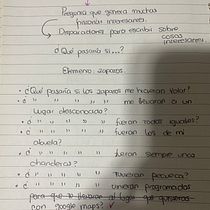 Pregunta que genera muchas
premisas interesantes.
Disparadores para escribir sobre
cosas
interesantes
¿Qué pasaría si...?
Elemento: zapatos.
• ¿Qué pasaría si los zapatos me hicieran volar?
• ¿ " " " " " me llevaran a un
lugar desconocido?
• ¿ " " " " " fueran todos iguales?
• ¿ " " " " " fueran los de mi
abuela?
• ¿ " " " " " fueran siempre unas
chancletas?
• ¿ " " " " " tuvieran pecueca?
• ¿ " " " " " vinieran programados
para que te llevaran al lugar que quisieras
con google maps?